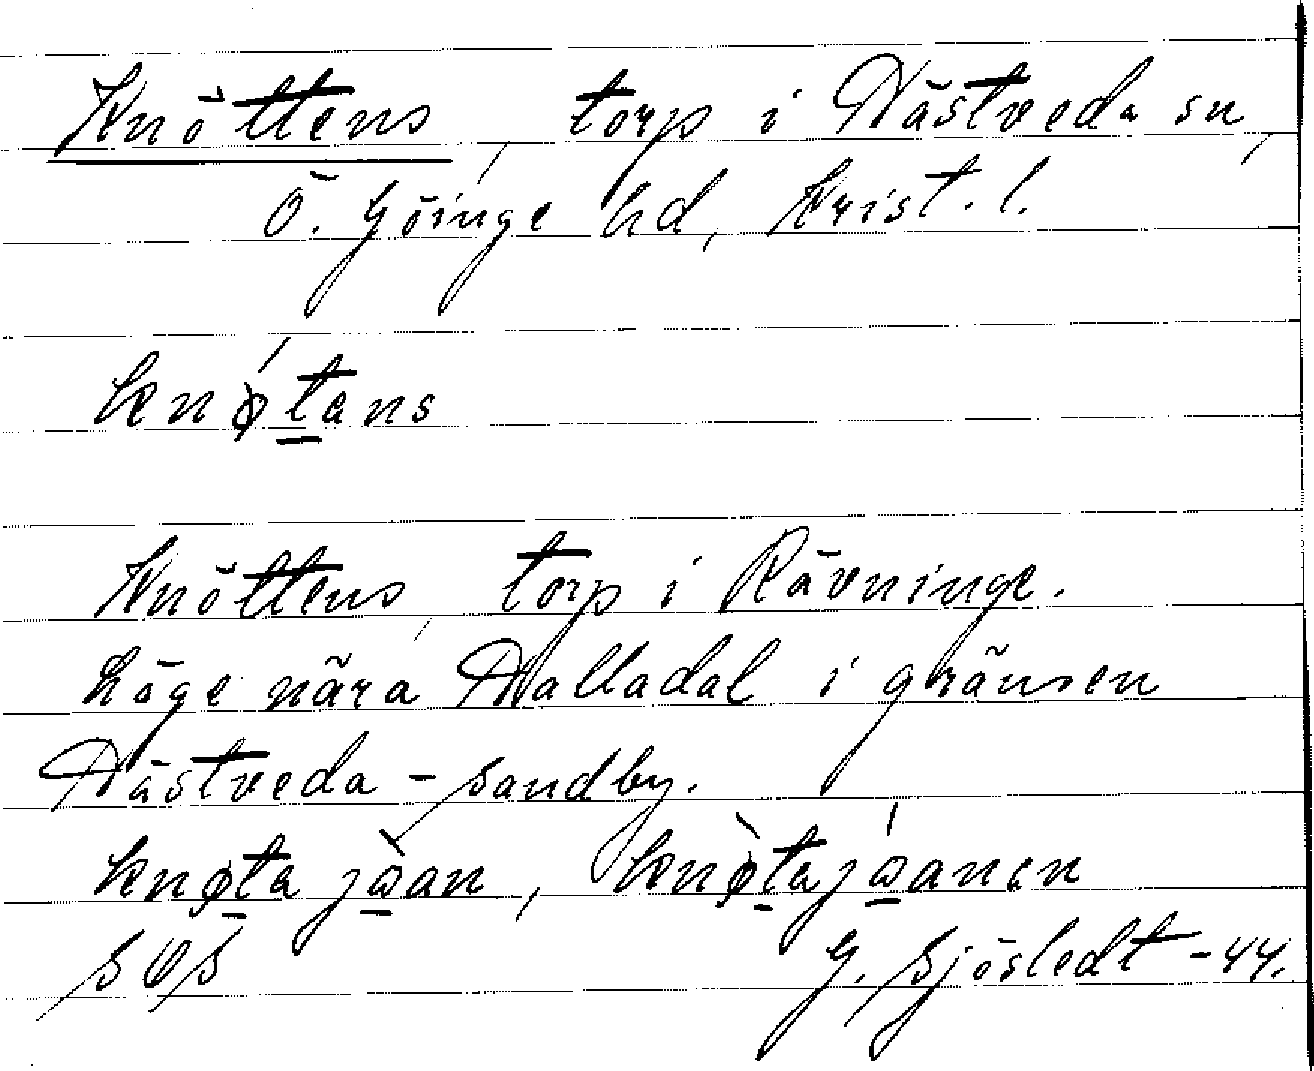 Knöttens, torp i Nästveda sn,
Ö. Göinge hd, Krist. l.
knǿtans
Knöttens, torp i Rävninge.
Höge nära Malladal i gränsen
Nästveda - Sandby.
knøta jòan, knø̀tajóanen
SOS G. Sjöstedt -44.